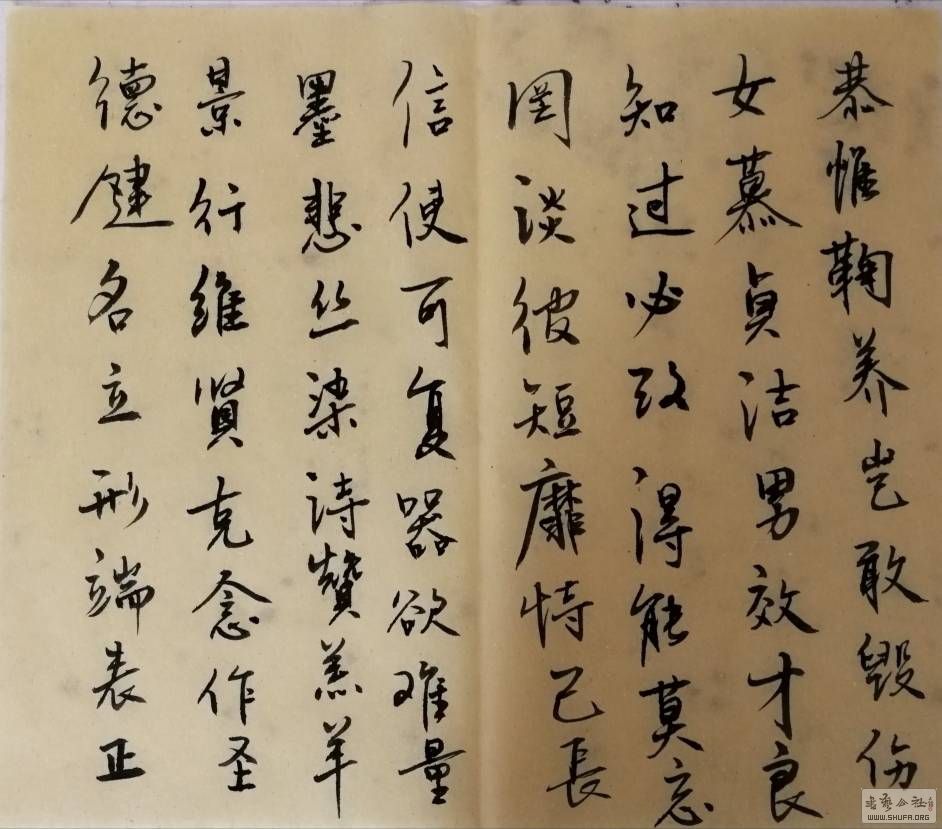 恭惟鞠养岂敢毁伤
女慕贞洁男效才良
知过必改得能莫忘
罔谈彼短靡恃己長
信使可复器欲难量
墨悲丝染诗赞羔羊
景行维賢克念作圣
德建名立形端表正
WWW.SHUFA.ORG